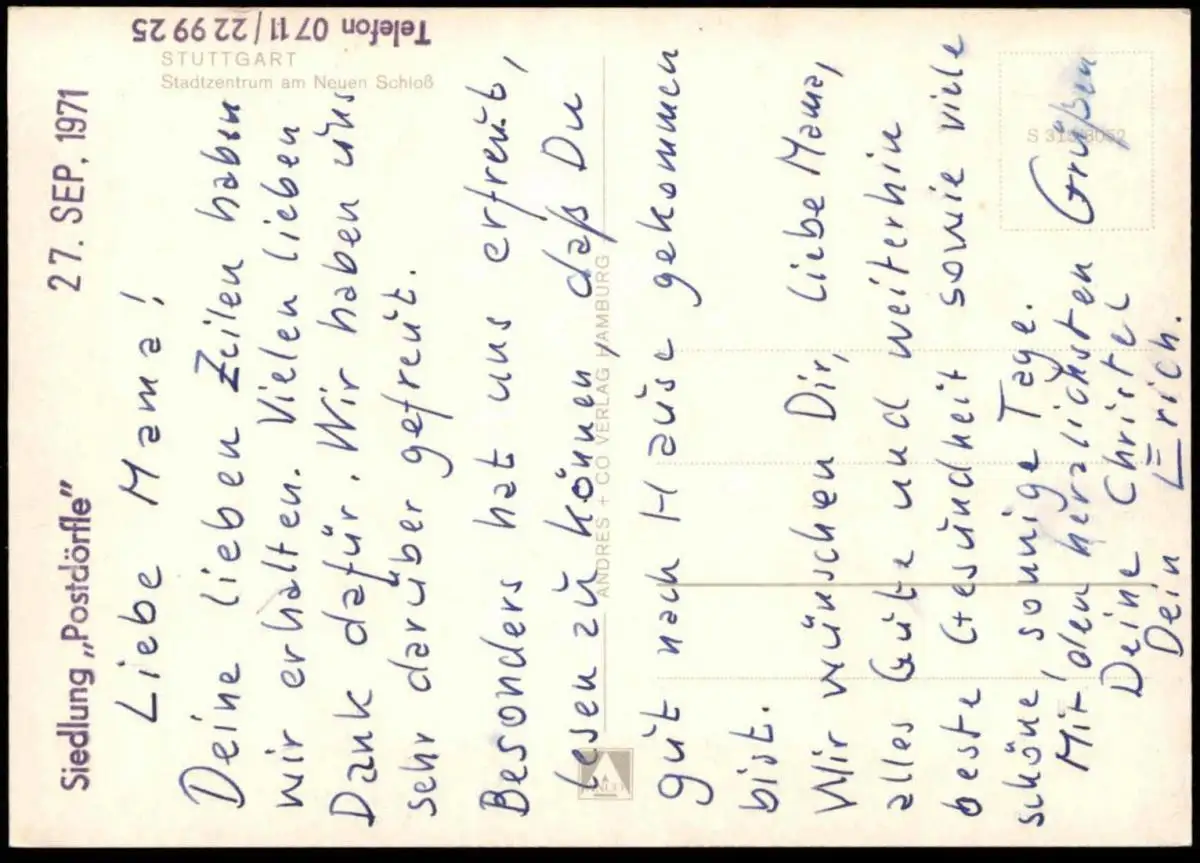 Telefon 0711/22 99 25
STUTTGART
Stadtzentrum am Neuen Schloß
Siedlung „Postdörfle”
27. SEP. 1971
Liebe Mama!
Deine lieben Zeilen haben
wir erhalten. Vielen lieben
Dank dafür. Wir haben uns
sehr darüber gefreut.
Besonders hat uns erfreut,
lesen zu können, daß Du
gut nach Hause gekommen
bist.
Wir wünschen Dir, liebe Mama,
alles Gute und weiterhin
beste Gesundheit sowie viele
schöne, sonnige Tage.
Mit den herzlichsten Grüßen
Deine Christel
Dein Erich.
ANDRES + CO VERLAG HAMBURG